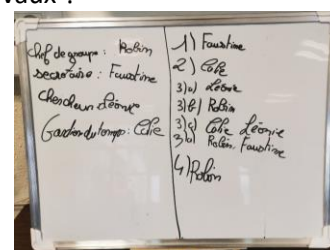 vaux ?
Chef de groupe : Robin
secrétaire : Faustine
Chercheur Léonie
Gardien du temps : Célie
1) Faustine
2) Célie
3)a) Léonie
3)b) Robin
3)c) Célie Léonie
3)d) Robin Faustine
4) Robin